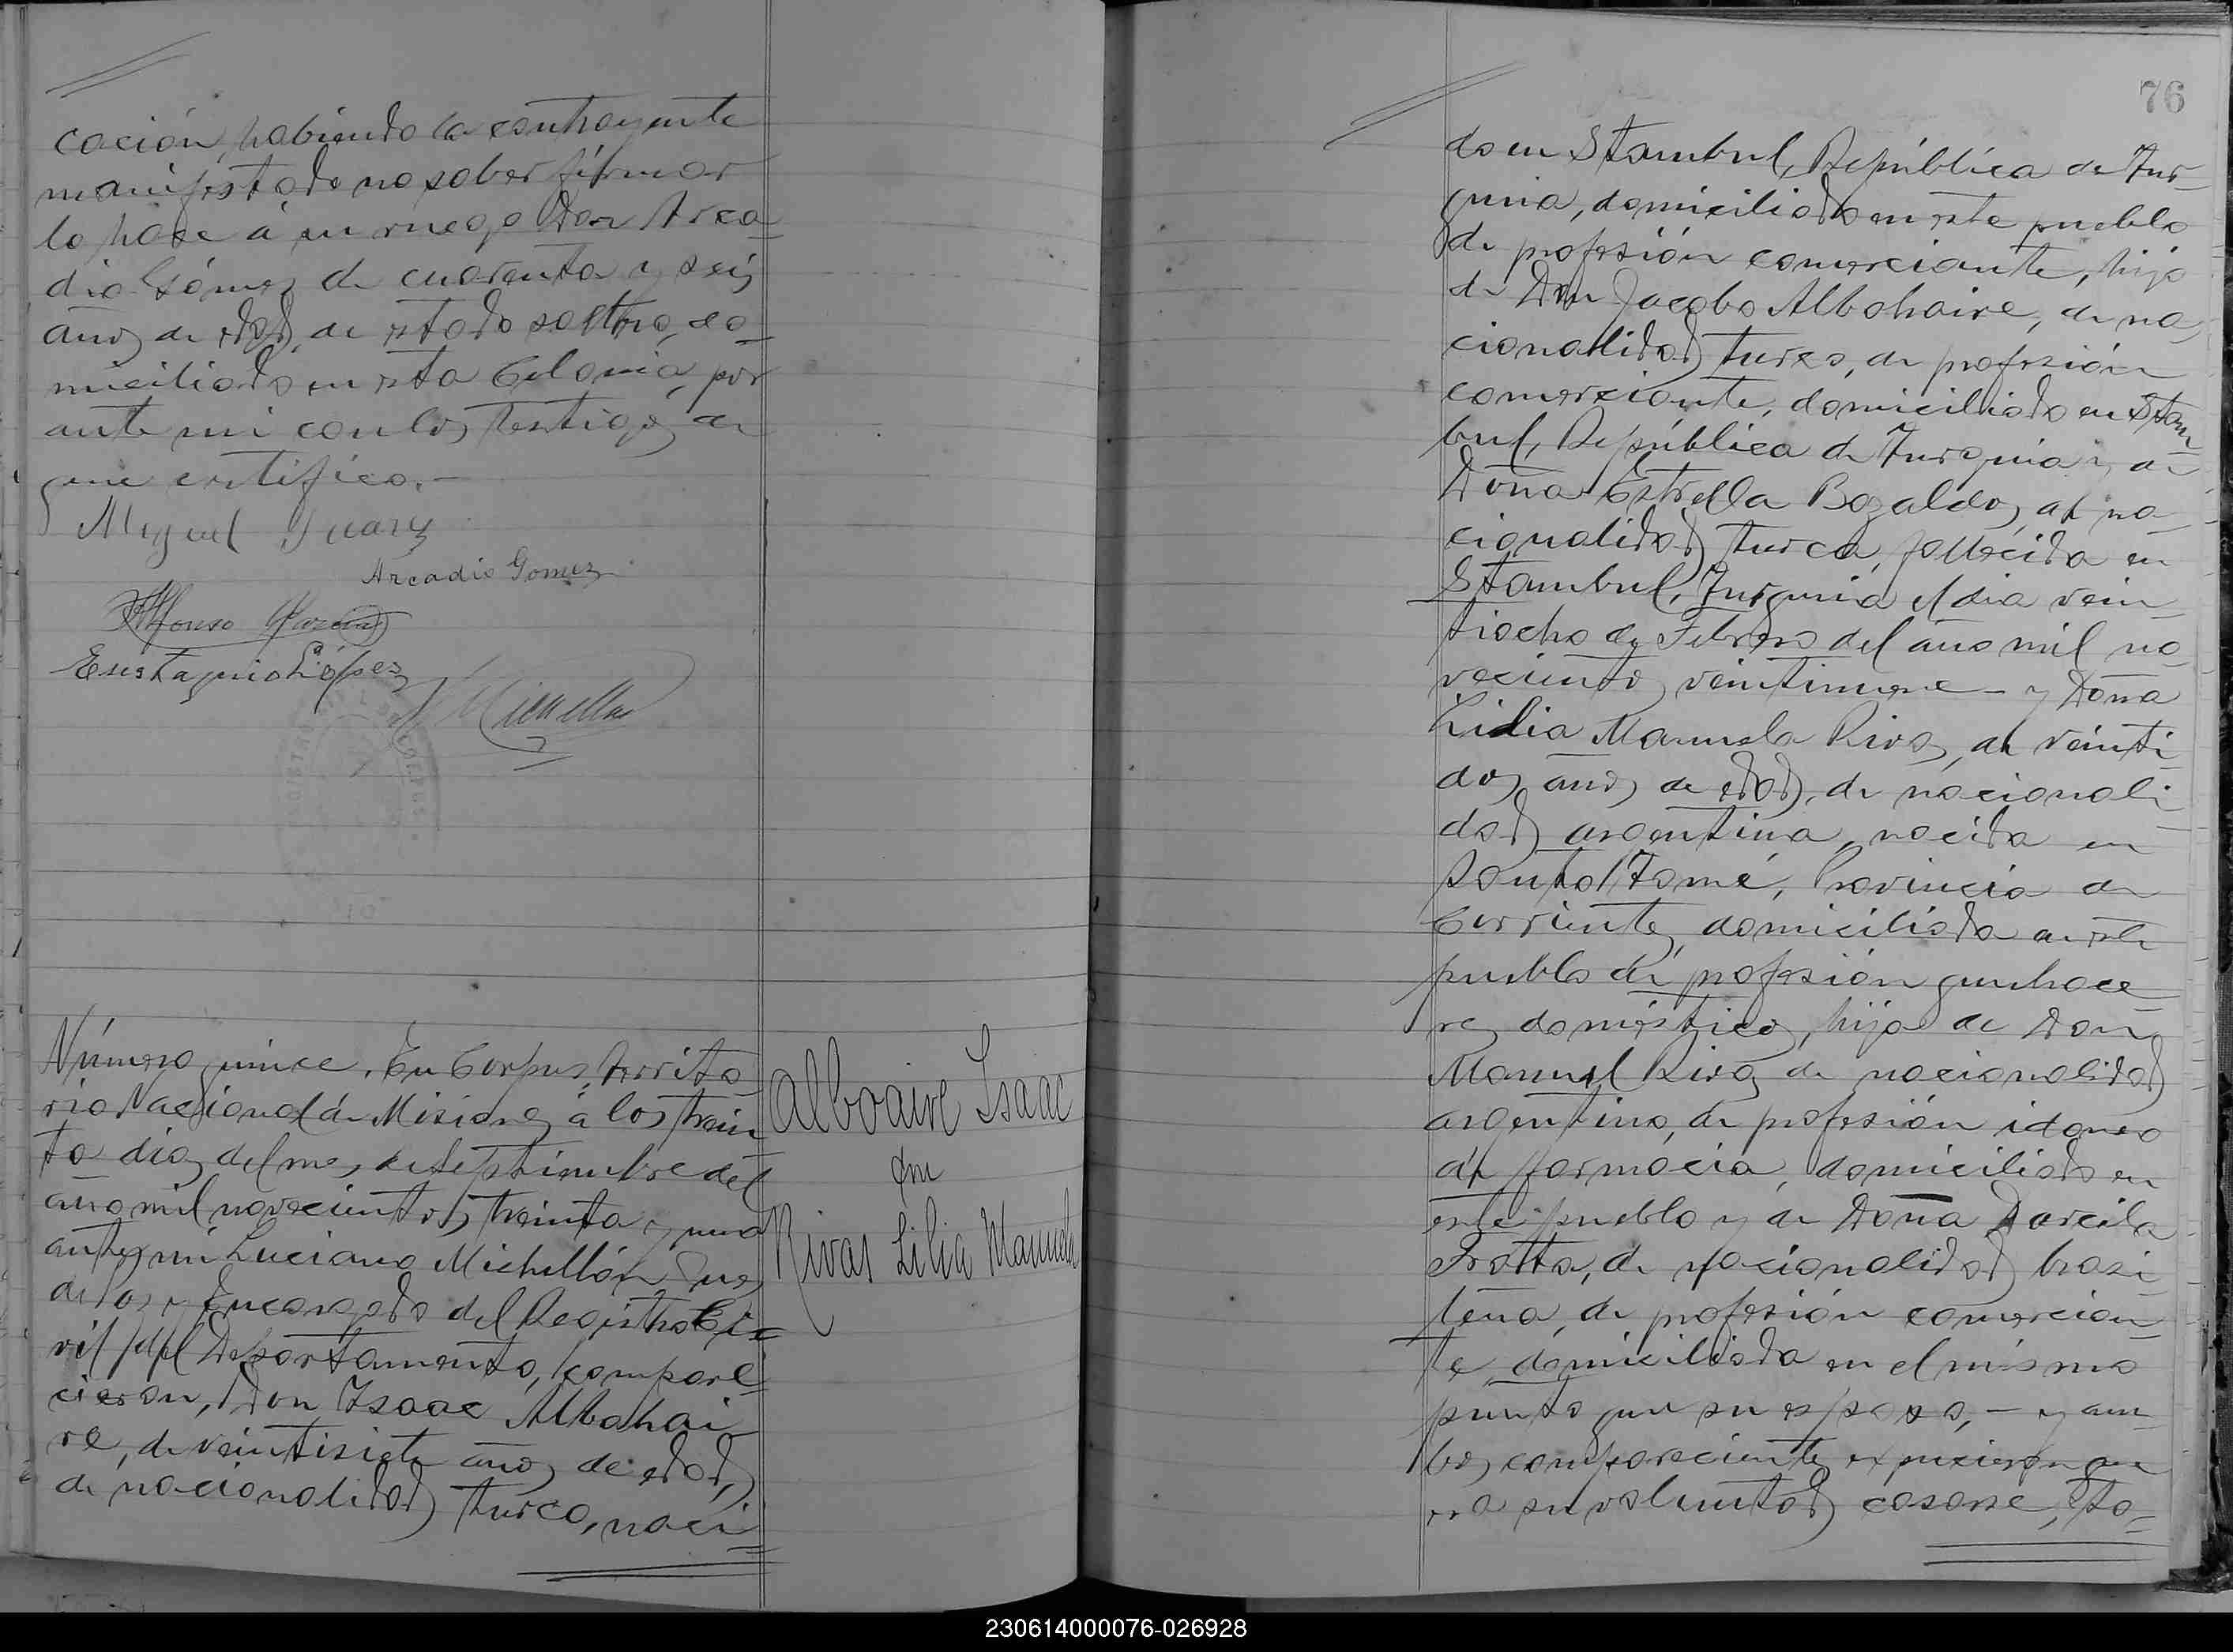 cación, habiendo la contrayente
manifestado no saber firmar
lo hace á su ruego Don Arca=
dio Gómez de cuarenta y seis
años de edad, de estado soltero, do=
miciliado en esta Colonia, por
ante mi con los testigos de
que certifico.—
Miguel Juarez
Arcadio Gomez
Alfonso
Eustaquio López
Michellon
Número quince. En Corpus, Territo=
rio Nacional de Misiones á los trein
ta dias del mes de Septiembre del
año mil novecientos treinta y uno
antes mi Luciano Michellón, Juez
de Paz y Encargado del Registro Ci=
vil del Departamento, compare=
cieron, Don Isaac Albahai
re, de veintisiete años de edad,
de nacionalidad turca, naci=
Alboaire Isaac
con
Rivas Lilia Manuela
76
do en Stambul, República de Tur=
quia, domiciliado en este pueblo
de profesión comerciante, hijo
de Don Jacobo Albahaire, de na=
cionalidad turca, de profesión
comerciante, domiciliado en Stam=
bul, República de Turquia y de
Doña Estrella Bozaldos, de na=
cionalidad turca, fallecida en
Stambul, Turquia el dia vein=
tiocho de Febrero del año mil no=
vecientos veintinueve — y Doña
Lidia Manuela Rivas, de veinti=
dos años de edad, de nacionali=
dad argentina, nacida en
Santo Tomé, Provincia de
Corrientes, domiciliada en este
pueblo de profesión quehace=
res domésticos, hija de Don
Manuel Rivas de nacionalidad
argentino, de profesión idoneo
de farmacia, domiciliado en
este pueblo y de Doña Darcila
Frotta, de nacionalidad brasi=
leña, de profesión comercian=
te, domiciliada en el mismo
punto que su esposo,— y am=
bos comparecientes expusieron que
era su voluntad casarse, é to=
230614000076-026928